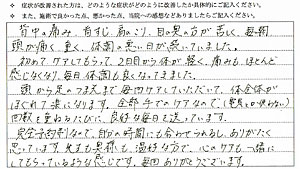 ※ 症状が改善された方は、どのような症状がどのように改善したか具体的にご記入ください。
※ また、施術で良かった点、悪かった点、当院への感想などありましたらご記入ください。
背中の痛み、首すじ、肩のこり、目の奥の方が苦しく、毎朝
頭が痛く重く、体調の悪い日が続いていました。
初めて、ケアしてもらって、2日目から体が軽く、痛みもほとんど
感じなくなり、毎日、体調も良くなってきました。
頭から足のつままで毎回ケアしていただいて、体全体が
ほぐれて楽になります。全部手でのケアなので(電気とか使わない)
回数を重ねるたびに、良好な毎日を送っています。
完全予約制なので、自分の時間にも合わせられるし、ありがたく
思っています。先生も奥様も、温好な方で、心のケアも一緒に
してもらっているような感じです。毎回ありがとうございます。